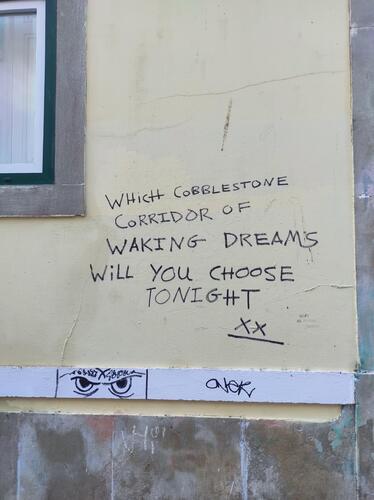 WHICH COBBLESTONE
CORRIDOR OF
WAKING DREAMS
WiLL YOU CHOOSE
TONIGHT
XX